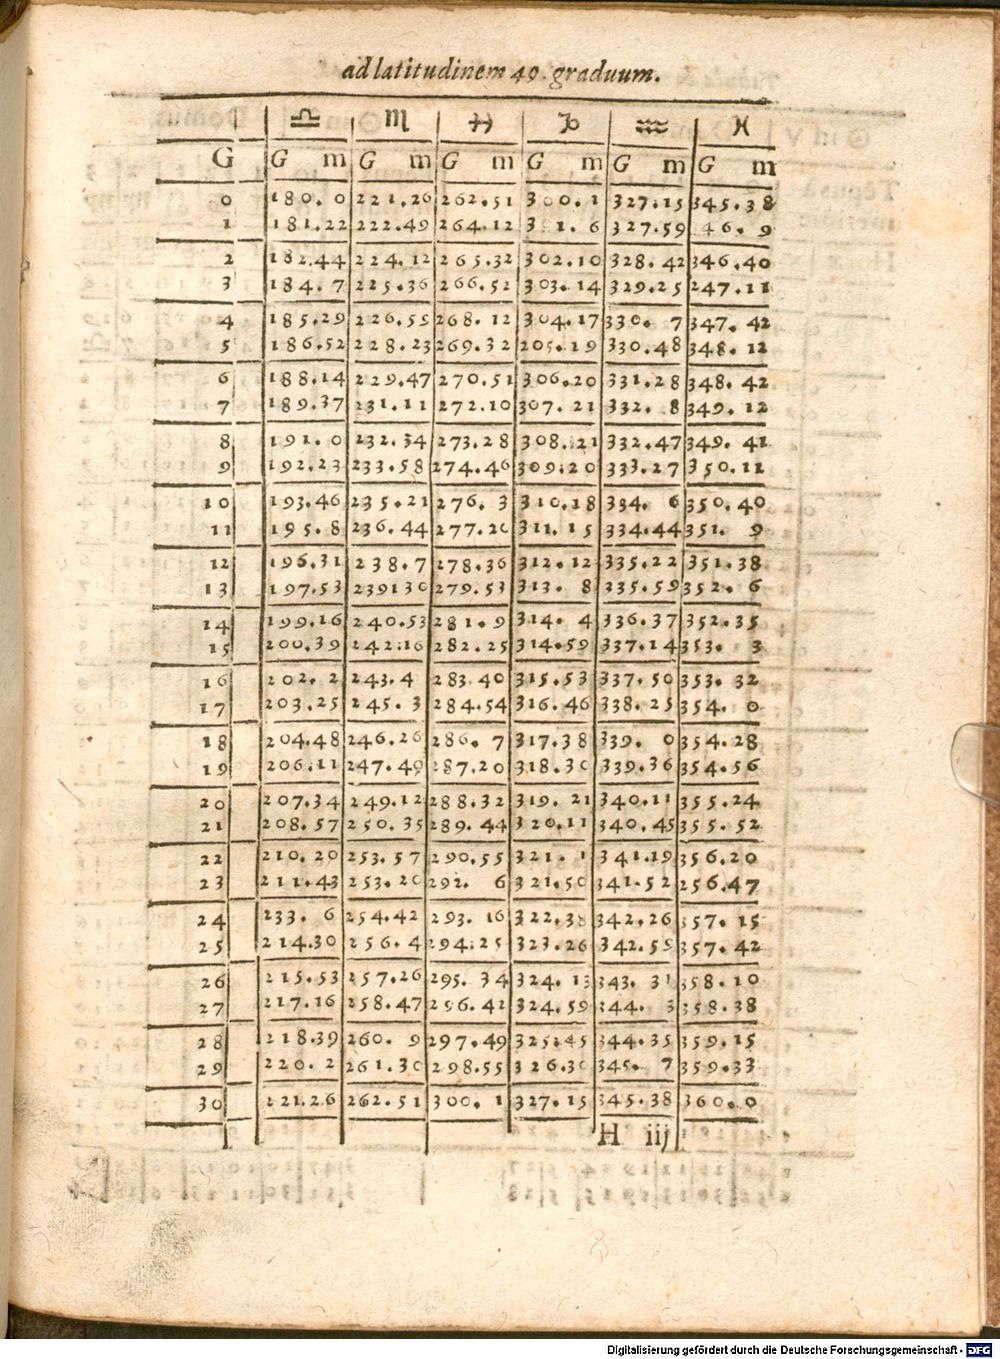 ad latitudinem 49. graduum.
♎ ♏ ♐ ♑ ♒ ♓
G G m G m G m G m G m G m
0 180. 0 221.26 262.51 300.1 327.15 345.38
1 181.22 222.49 264.12 6 327.59 46. 9
2 182.44 224.12 265.32 302.10 328.42 346.40
3 184. 7 225.36 266.52 303.14 329.25 247.11
4 185.29 226.59 268.12 304.17 330. 7 347.42
5 186.52 228.23 269.32 205.19 330.48 348.12
6 188.14 229.47 270.51 306.20 331.28 348.42
7 189.37 231.11 272.10 307.21 332. 8 349.12
8 191. 0 232.34 273.28 308.21 332.47 349.41
9 192.23 233.58 274.46 309:20 333.27 350.11
10 193.46 235.21 276. 3 310.18 334. 6 350.40
11 195.8 236.44 277.20 311.15 334.44 351. 9
12 196.31 238.7 278.36 312.12 335.22 351.38
13 197.53 239130 279.53 313. 8 335.59 352. 6
14 199.16 240.53 281.9 314. 4 336.37 352.35
15 200.39 242:16 282.25 314.59 337.14 353. 3
16 202. 2 243.4 283.40 315.53 337.50 353.32
17 203.25 245. 3 284.54 316.46 338.25 354. 0
18 204.48 246.26 286. 7 317.38 339. 0 354.28
19 206.11 247.49 287.20 318.30 339.36 354.56
20 207.34 249.12 288.32 319.21 340.11 355.24
21 208.57 250.35 289.44 320.11 340.45 355.52
22 210.20 253.57 290.55 321. 1 341.19 356.20
23 211.43 253.20 292. 6 321.50 341.52 256.47
24 233. 6 254.42 293.16 322.38 342.26 357.15
25 214.30 256.4 294.25 323.26 342.59 357.42
26 215.53 257.26 295.34 324.13 343.31 358.10
27 217.16 258.47 296.42 324.59 344. 3 358.38
28 218.39 260. 9 297.49 325.45 344.35 359.15
29 220. 2 261.30 298.55 326.30 345. 7 359.33
30 221.26 262.51 300. 1 327.15 345.38 360.0
H iij
Digitalisierung gefördert durch die Deutsche Forschungsgemeinschaft - DFG